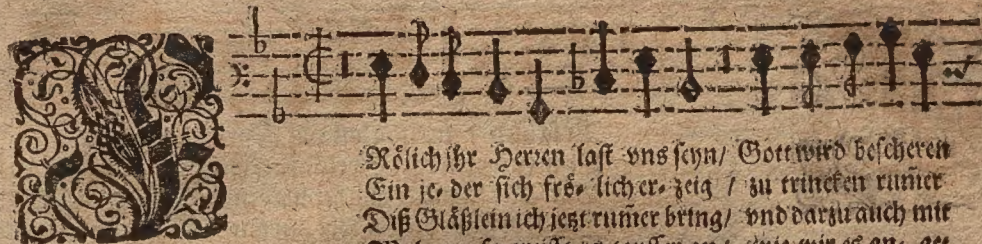 FRölich jhr Herren last vns seyn/ Gott wird bescheren
Ein je- der sich frö- lich er- zeig / zu trincken rum̃er
Diß Gläßlein ich jetzt rum̃er bring/ vnd darzu auch mit